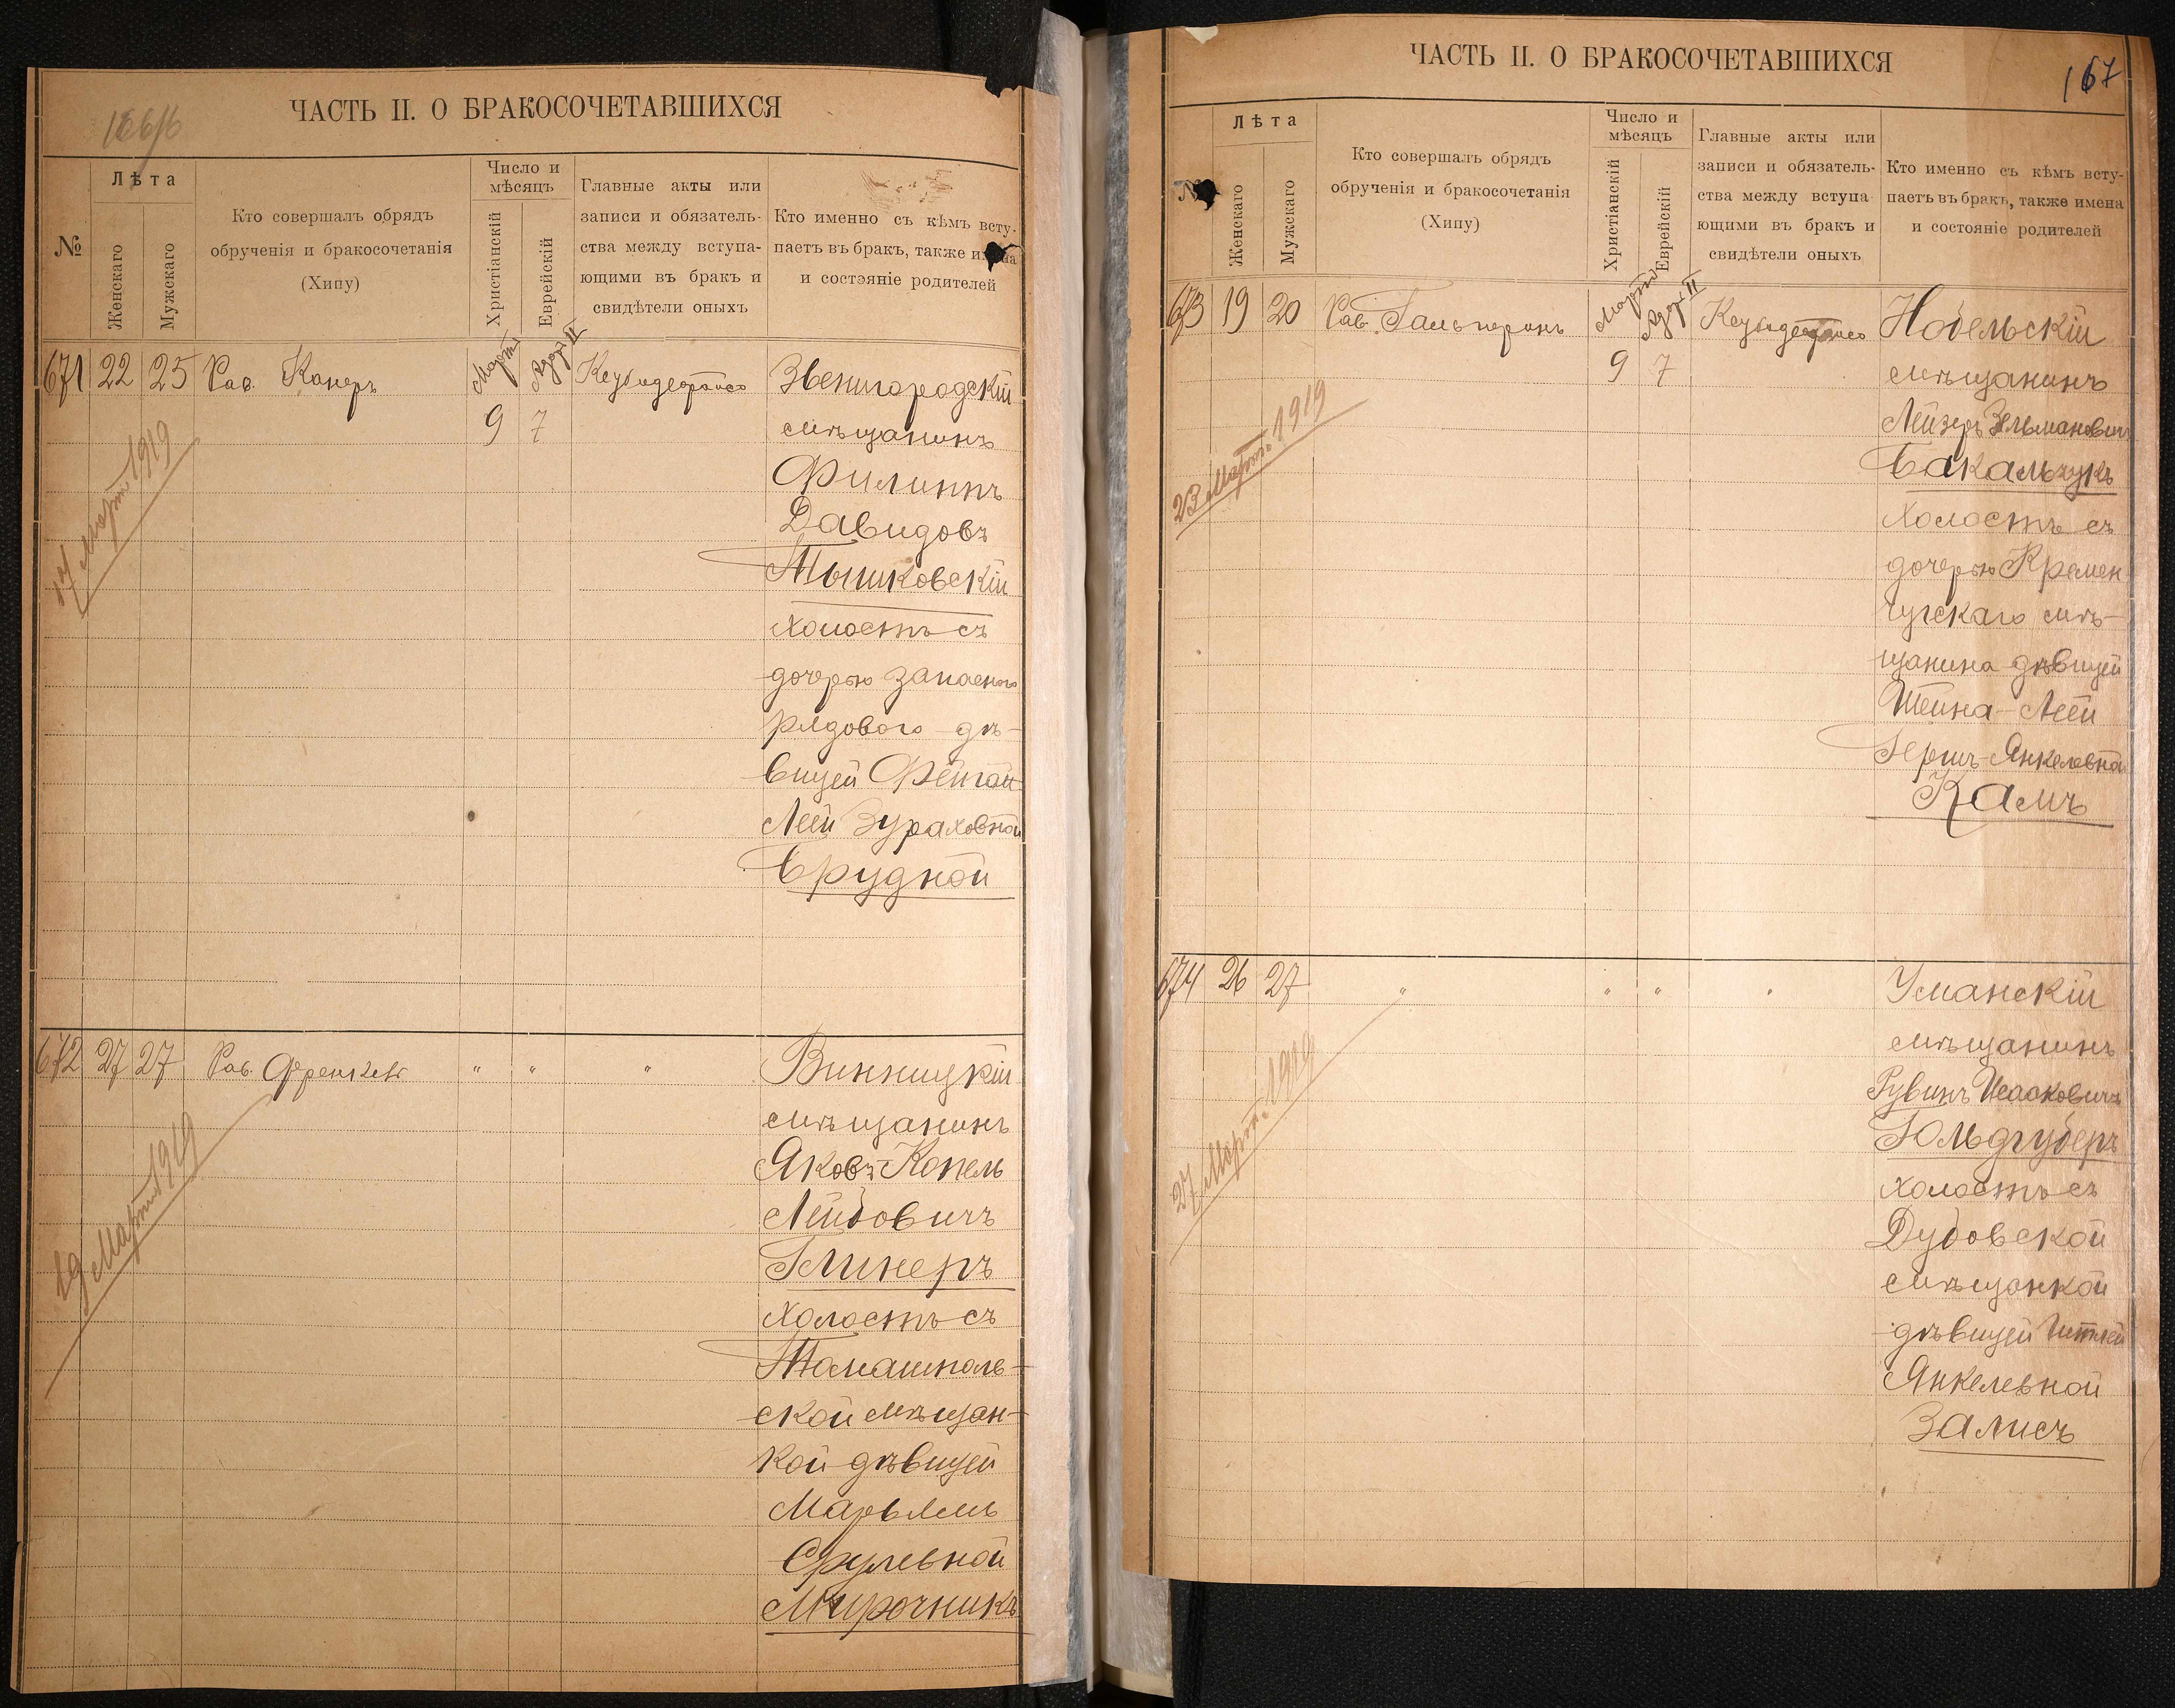 ЧАСТЬ II. О БРАКОСОЧЕТАВШИХСЯ
№
Лѣта
Женскаго
Мужскаго
Кто совершалъ обрядъ
обрученія и бракосочетанія
(Хипу)
Число и
мѣсяцъ
Христіанскій
Еврейскій
Главные акты или
записи и обязатель-
ства между вступа-
ющими въ бракъ и
свидѣтели оныхъ
Кто именно съ кѣмъ всту-
паетъ въ бракъ, также имена
и состояніе родителей
671 22 25 Рав. Канеръ
Марта Адар II
9 7
17 Марта 1919
Звенигородскій
мѣщанинъ
Филиппъ
Давидовъ
Тышковскій
холостъ съ
дочерью запаснаго
рядового дѣ-
вицей Фейгой-
Леей Зураховной
Брудной
672 27 27 Рав. Френкель " " "
19 Марта 1919
Винницкій
мѣщанинъ
Яковъ-Копель
Лейбовичъ
Глинеръ
холостъ съ
Томашполь-
ской мѣщан-
кой дѣвицей
Марьямъ
Срулевной
Мирочникъ
ЧАСТЬ II. О БРАКОСОЧЕТАВШИХСЯ
167
№
Лѣта
Женскаго
Мужскаго
Кто совершалъ обрядъ
обрученія и бракосочетанія
(Хипу)
Число и
мѣсяцъ
Христіанскій
Еврейскій
Главные акты или
записи и обязатель-
ства между вступа-
ющими въ бракъ и
свидѣтели оныхъ
Кто именно съ кѣмъ всту-
паетъ въ бракъ, также имена
и состояніе родителей
673 19 20 Рав. Гальперинъ
Марта Адар II
9 7
23 Марта 1919
Нобельскій
мѣщанинъ
Лейзеръ Зельмановичъ
Бакальчукъ
холостъ съ
дочерью Кремен-
чугскаго мѣ-
щанина дѣвицей
Шейна-Леей
Гершъ-Янкелевной
Камъ
674 26 27 " " " "
27 Марта 1919
Уманскій
мѣщанинъ
Рувинъ Исааковичъ
Гольдгуберъ
холостъ съ
Дубовской
мѣщанкой
дѣвицей Итлей
Янкелевной
Залисъ